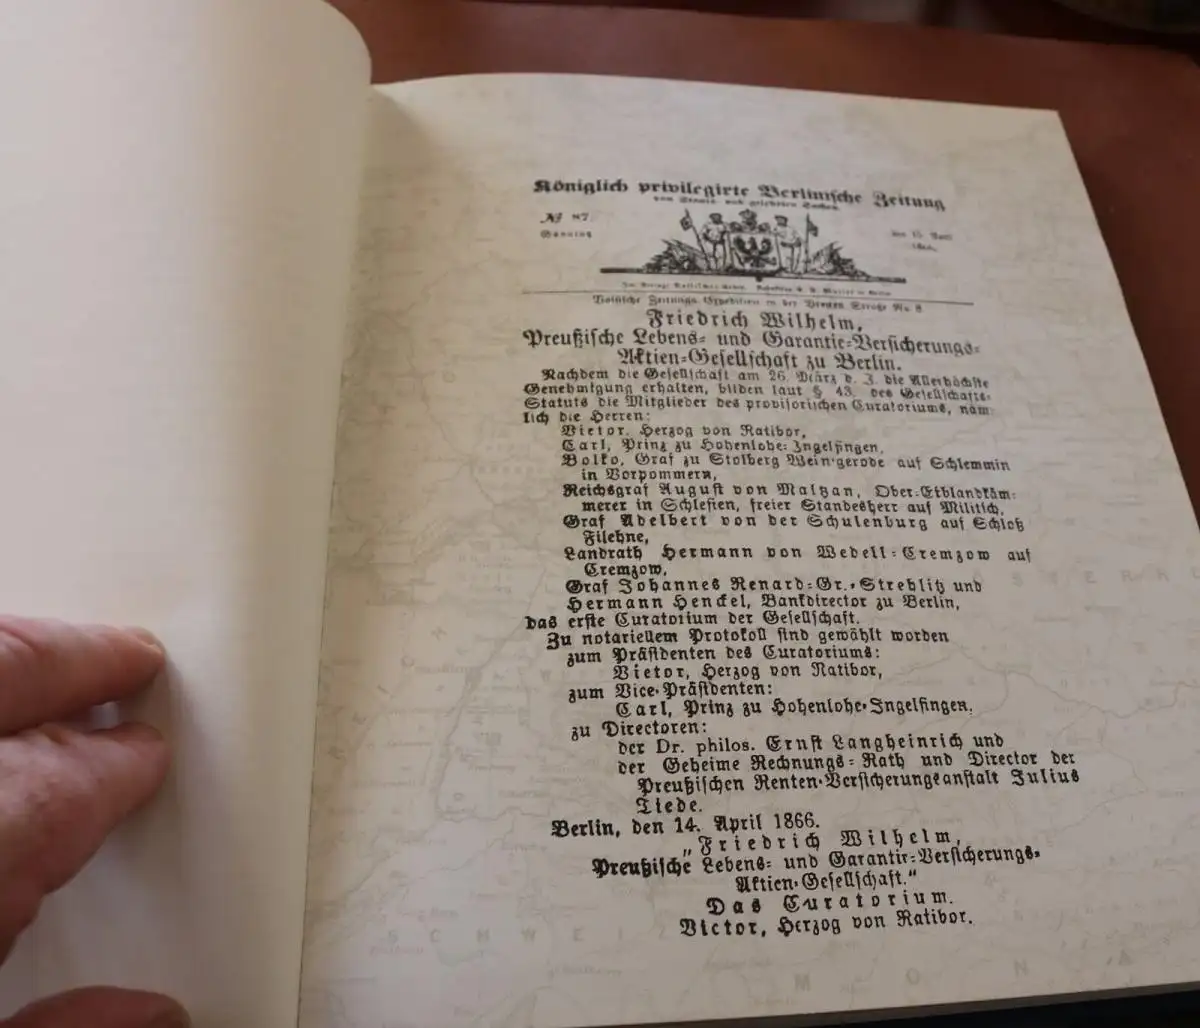 Königlich privilegirte Berlinische Zeitung
von Staats- und gelehrten Sachen.
№ 87.
Sonntag
den 15. April
1866.
Im Verlage Vossischer Erben. Redakteur in Berlin
Vossische Zeitungs-Expedition in der Breiten Straße No. 8
Friedrich Wilhelm,
Preußische Lebens- und Garantie-Versicherungs-
Aktien-Gesellschaft zu Berlin.
Nachdem die Gesellschaft am 26. März d. J. die Allerhöchste
Genehmigung erhalten, bilden laut § 43. des Gesellschafts-
Statuts die Mitglieder des provisorischen Curatoriums, näm-
lich die Herren:
Victor, Herzog von Ratibor,
Carl, Prinz zu Hohenlohe-Ingelfingen,
Bolko, Graf zu Stolberg Wernigerode auf Schlemmin
in Vorpommern,
Reichsgraf August von Maltzan, Ober-Erblandkäm-
merer in Schlesien, freier Standesherr auf Militsch,
Graf Adelbert von der Schulenburg auf Schloß
Filehne,
Landrath Hermann von Wedell-Cremzow auf
Cremzow,
Graf Johannes Renard-Gr.-Strehlitz und
Hermann Henckel, Bankdirector zu Berlin,
das erste Curatorium der Gesellschaft.
Zu notariellem Protokoll sind gewählt worden
zum Präsidenten des Curatoriums:
Victor, Herzog von Ratibor,
zum Vice-Präsidenten:
Carl, Prinz zu Hohenlohe-Ingelfingen,
zu Directoren:
der Dr. philos. Ernst Langheinrich und
der Geheime Rechnungs-Rath und Director der
Preußischen Renten-Versicherungsanstalt Julius
Tiede.
Berlin, den 14. April 1866.
„Friedrich Wilhelm,
Preußische Lebens- und Garantie-Versicherungs-
Aktien-Gesellschaft.“
Das Curatorium.
Victor, Herzog von Ratibor.
SCHWEIZ